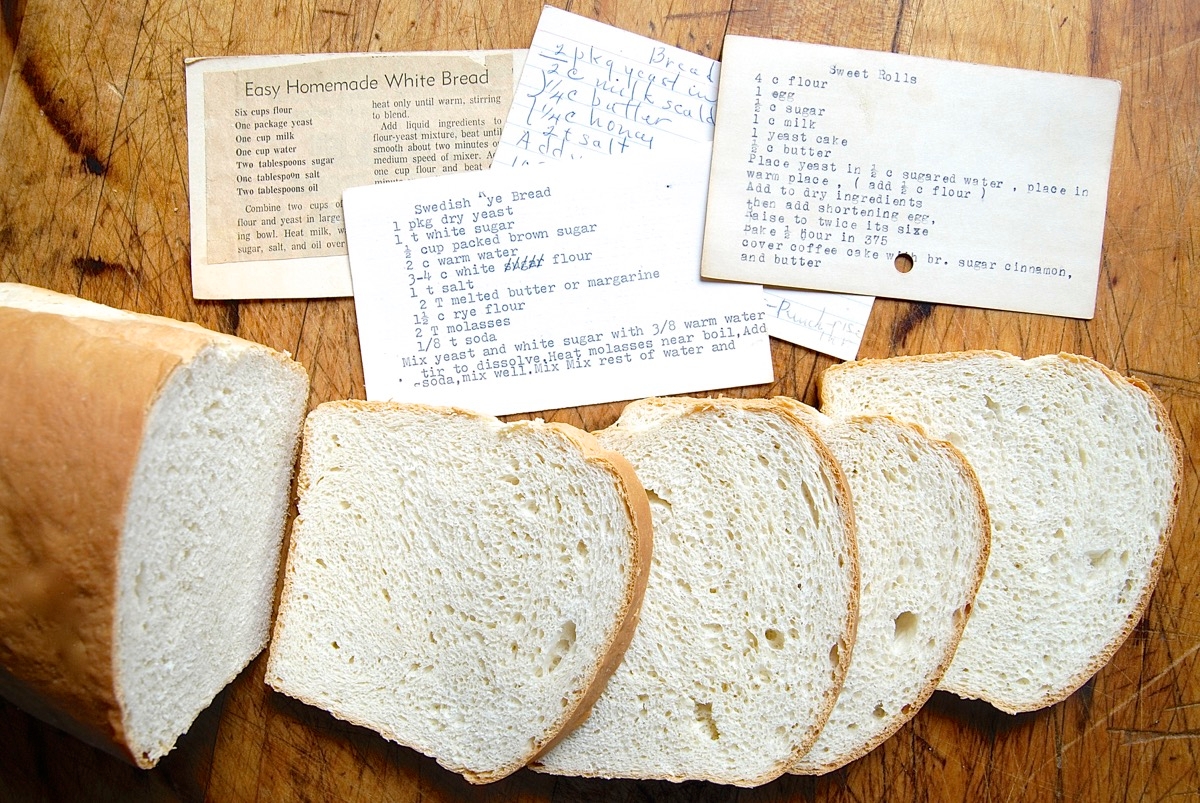 Easy Homemade White Bread
Six cups flour
One package yeast
One cup milk
One cup water
Two tablespoons sugar
One tablespoon salt
Two tablespoons oil
Combine two cups of
flour and yeast in large
ing bowl. Heat milk,
sugar, salt, and oil over
heat only until warm, stirring
to blend.
Add liquid ingredients to
flour-yeast mixture, beat until
smooth about two minutes
medium speed of mixer.
one cup flour and beat
Bread
2 pkg yeast in
2 c milk scald
1/4 c butter
1/4 c honey
2 t salt
Add
Swedish Rye Bread
1 pkg dry yeast
1 t white sugar
½ cup packed brown sugar
2 c warm water
3-4 c white flour
1 t salt
2 T melted butter or margarine
1½ c rye flour
2 T molasses
1/8 t soda
Mix yeast and white sugar with 3/8 warm water
tir to dissolve,Heat molasses near boil,Add
soda,mix well.Mix Mix rest of water and
Sweet Rolls
4 c flour
1 egg
½ c sugar
1 c milk
1 yeast cake
½ c butter
Place yeast in ½ c sugared water , place in
warm place , ( add ½ c flour )
Add to dry ingredients
then add shortening egg,
Raise to twice its size
Bake ½ hour in 375
cover coffee cake with br. sugar cinnamon,
and butter